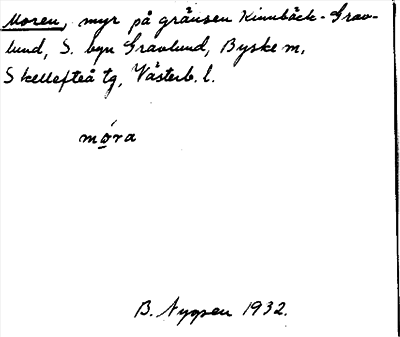 Moren, myr på gränsen Kinnbäck - Grav-
lund, S. byn Gravlund, Byske m,
Skellefteå tg, Västerb. l.
móra
B. Nygren 1932.